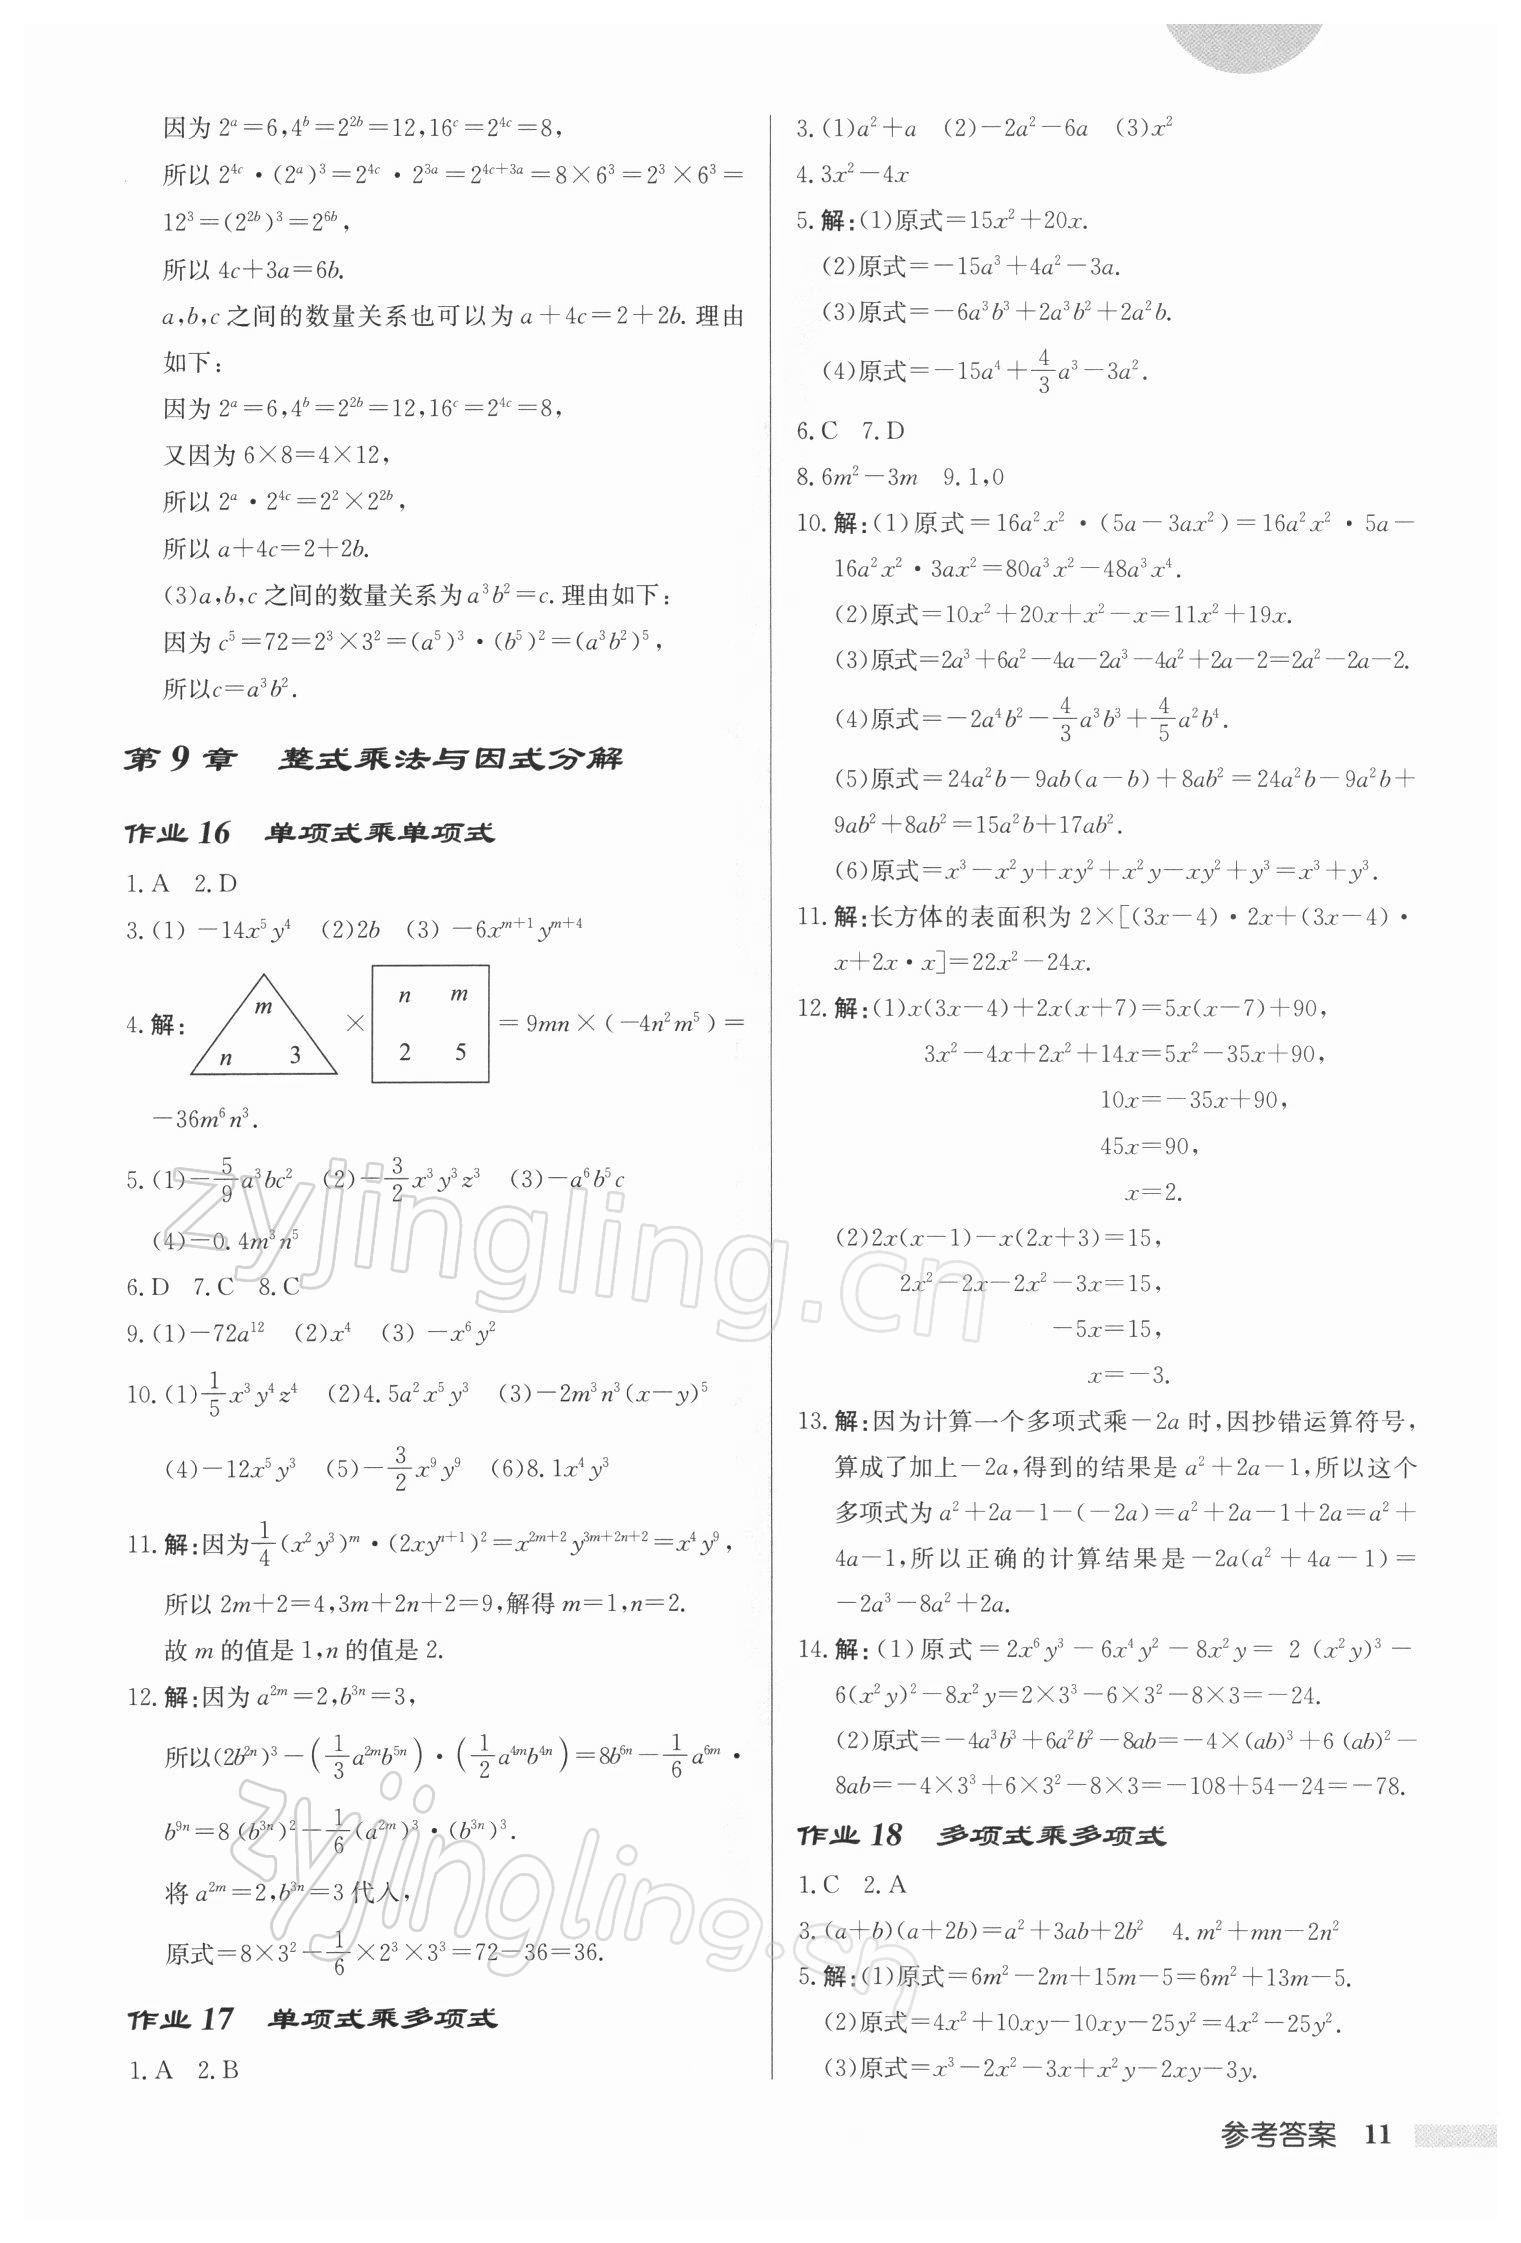 因为 2ᵃ=6,4ᵇ=2²ᵇ=12,16ᶜ=2⁴ᶜ=8,
所以 2⁴ᶜ·(2ᵃ)³=2⁴ᶜ·2³ᵃ=2⁴ᶜ⁺³ᵃ=8×6³=2³×6³=
12³=(2²ᵇ)³=2⁶ᵇ,
所以 4c+3a=6b.
a,b,c 之间的数量关系也可以为 a+4c=2+2b. 理由
如下:
因为 2ᵃ=6,4ᵇ=2²ᵇ=12,16ᶜ=2⁴ᶜ=8,
又因为 6×8=4×12,
所以 2ᵃ·2⁴ᶜ=2²×2²ᵇ,
所以 a+4c=2+2b.
(3)a,b,c 之间的数量关系为 a³b²=c. 理由如下:
因为 c⁵=72=2³×3²=(a⁵)³·(b⁵)²=(a³b²)⁵,
所以c=a³b².
第 9 章 整式乘法与因式分解
作业 16 单项式乘单项式
1. A 2. D
3. (1) -14x⁵y⁴ (2)2b (3) -6xᵐ⁺¹yᵐ⁺⁴
4. 解: m n 3 × n m 2 5 =9mn×(-4n²m⁵)=
-36m⁶n³.
5. (1)-5/9 a³bc² (2)-3/2 x³y³z³ (3)-a⁶b⁵c
(4)-0.4m³n⁵
6. D 7. C 8. C
9. (1)-72a¹² (2)x⁴ (3) -x⁶y²
10. (1)1/5 x³y⁴z⁴ (2)4.5a²x⁵y³ (3)-2m³n³(x-y)⁵
(4)-12x⁵y³ (5)-3/2 x⁹y⁹ (6)8.1x⁴y³
11. 解:因为1/4(x²y³)ᵐ·(2xyⁿ⁺¹)²=x²ᵐ⁺²y³ᵐ⁺²ⁿ⁺²=x⁴y⁹,
所以 2m+2=4,3m+2n+2=9,解得 m=1,n=2.
故 m 的值是 1,n 的值是 2.
12. 解:因为 a²ᵐ=2,b³ⁿ=3,
所以(2b²ⁿ)³-(1/3 a²ᵐb⁵ⁿ)·(1/2 a⁴ᵐb⁴ⁿ)=8b⁶ⁿ-1/6 a⁶ᵐ·
b⁹ⁿ=8(b³ⁿ)²-1/6(a²ᵐ)³·(b³ⁿ)³.
将 a²ᵐ=2,b³ⁿ=3 代入,
原式=8×3²-1/6×2³×3³=72-36=36.
作业 17 单项式乘多项式
1. A 2. B
3. (1)a²+a (2)-2a²-6a (3)x²
4. 3x²-4x
5. 解:(1)原式=15x²+20x.
(2)原式=-15a³+4a²-3a.
(3)原式=-6a³b³+2a³b²+2a²b.
(4)原式=-15a⁴+4/3 a³-3a².
6. C 7. D
8. 6m²-3m 9. 1,0
10. 解:(1)原式=16a²x²·(5a-3ax²)=16a²x²·5a-
16a²x²·3ax²=80a³x²-48a³x⁴.
(2)原式=10x²+20x+x²-x=11x²+19x.
(3)原式=2a³+6a²-4a-2a³-4a²+2a-2=2a²-2a-2.
(4)原式=-2a⁴b²-4/3 a³b³+4/5 a²b⁴.
(5)原式=24a²b-9ab(a-b)+8ab²=24a²b-9a²b+
9ab²+8ab²=15a²b+17ab².
(6)原式=x³-x²y+xy²+x²y-xy²+y³=x³+y³.
11. 解:长方体的表面积为 2×[(3x-4)·2x+(3x-4)·
x+2x·x]=22x²-24x.
12. 解:(1)x(3x-4)+2x(x+7)=5x(x-7)+90,
3x²-4x+2x²+14x=5x²-35x+90,
10x=-35x+90,
45x=90,
x=2.
(2)2x(x-1)-x(2x+3)=15,
2x²-2x-2x²-3x=15,
-5x=15,
x=-3.
13. 解:因为计算一个多项式乘-2a 时,因抄错运算符号,
算成了加上-2a,得到的结果是 a²+2a-1,所以这个
多项式为 a²+2a-1-(-2a)=a²+2a-1+2a=a²+
4a-1,所以正确的计算结果是-2a(a²+4a-1)=
-2a³-8a²+2a.
14. 解:(1)原式=2x⁶y³-6x⁴y²-8x²y= 2 (x²y)³-
6(x²y)²-8x²y=2×3³-6×3²-8×3=-24.
(2)原式=-4a³b³+6a²b²-8ab=-4×(ab)³+6 (ab)²-
8ab=-4×3³+6×3²-8×3=-108+54-24=-78.
作业 18 多项式乘多项式
1. C 2. A
3. (a+b)(a+2b)=a²+3ab+2b² 4. m²+mn-2n²
5. 解:(1)原式=6m²-2m+15m-5=6m²+13m-5.
(2)原式=4x²+10xy-10xy-25y²=4x²-25y².
(3)原式=x³-2x²-3x+x²y-2xy-3y.
参考答案 11
zyjingling.cn
zyjingling.cn